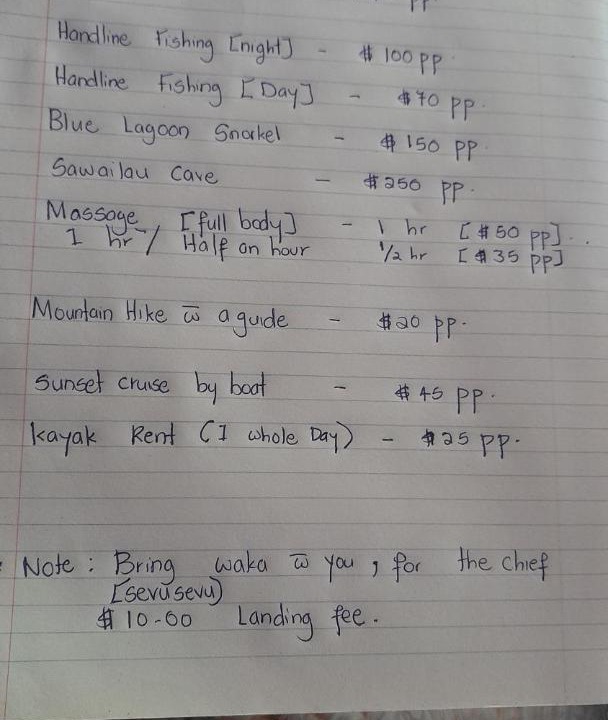 Handline Fishing [night] - $100 pp.
Handline Fishing [Day] - $70 pp.
Blue Lagoon Snorkel - $150 pp.
Sawailau Cave - $250 pp.
Massage [full body] - 1 hr [$50 pp]..
1 hr / Half an hour 1/2 hr [$35 pp]
Mountain Hike w̅ a guide - $20 pp.
Sunset cruise by boat - $45 pp.
Kayak Rent (1 whole Day) - $25 pp.
Note: Bring waka w̅ you, for the chief
[sevusevu)
$10-00 Landing fee.